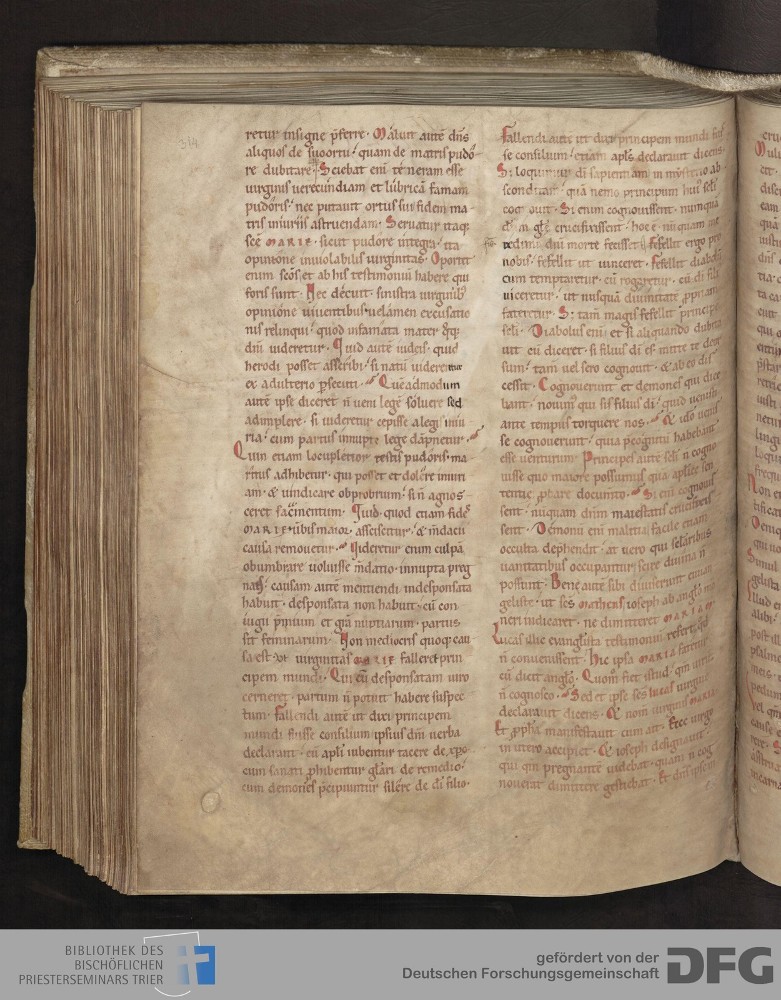 retur insigne p̄ferre. Maluit autē dn̄s
aliquos de suo ortu. quam de matris pudo-
re dubitare. Sciebat eni teneram esse
uirginis uerecundiam et lubricā famam
pudoris. nec putauit ortus sui fidem ma-
tris iniuriis astruendam. Seruatur itaq;
scē MARIE. sicut pudore integra. ita
opinione inuiolabilis uirginitas. Oportet
enim scōs et ab his testimoniū habere qui
foris sunt. Nec decuit sinistra uirginib;
opinione uiuentibus uelamen excusatio
nis relinqui. quod infamata mater quoq;
dn̄i uideretur. Quid autē iudeis. quid
herodi posset asscribi. si natū uiderentur
ex adulterio persecuti. Quēadmodum
autē ipse diceret n̄ ueni legē soluere sed
adimplere. si uideretur cepisse a legis iniu
ria. cum partus innupte lege dāpnetur.
Quin etiam locupletior testis pudoris. ma-
ritus adhibetur. qui posset et dolere iniuri
am. & uindicare obprobrium. si n̄ agnos-
ceret sacramentum. Quid. quod etiam fides
MARIE uerbis maior asseiscitur. & mdacii
causa remouetur. Uideretur enim culpā
obumbrare uoluisse mdatio. innupta preg
nans. causam autē mentiendi indesponsata
habuit. desponsata non habuit. cū con-
iugii p̄mium et grā nuptiarum. partus
sit feminarum. Non mediocris quoq; cau
sa est ut uirginitas MARIE falleret prin
cipem mundi. Qui cū desponsatam uiro
cerneret. partum n̄ potuit habere suspec-
tum. Fallendi autē ut dixi principem
mundi fuisse consilium ipsius dn̄i uerba
declarant. cū apli iubentur tacere de xpo.
cum sanati p̄hibentur glari de remedio.
cum demones p̄cipiuntur silere de di filio.
Fallendi autē ut dixi principem mundi fuis
se consilium. etiam apls declarauit dicens.
S; loquimur di sapientiam in misterio ab
sconditam. quā nemo principum hui scli
cognouit. Si enim cognouissent. numquā
dm glē crucifixissent. hoc e. nūquam me
redimi dni morte fecissent. Fefellit ergo pro
nobis. fefellit ut uinceret. Fefellit diabolū
cum temptaretur. cū rogaretur. cū di filius
diceretur. ut nusquā diuinitatē ppriam
fateretur. S; tam magis fefellit principē
scli. Diabolus eni et si aliquando dubita
uit cū diceret. si filius di es mitte te deor
sum. tam uel sero cognouit. & ab eo dis
cessit. Cognouerunt et demones qui dice
bant. nouim; qui sis filius di. quid uenisti
ante tempus torquere nos. & ido uenis
se cognouerunt. quia precognitū habebant
esse uenturum. Principes autē scli n cogno
uisse quo maiore possumus quā aplice sen
tentie probare documto. Si eni cognouis
sent. nūquam dnm maiestatis crucifixis
sent. Demonū eni malitia facile etiam
occulta dephendit. at uero qui sclaribus
uanitatibus occupantur. scire diuina n̄
possunt. Bene autē sibi diuiserunt euuan
geliste. ut scs Matheus ioseph ab anglo mo
neri indicaret. ne dimitteret MARIAM.
Lucas ille euanglista testimoniū referret. qd
n̄ conuenissent. Hic ipsa MARIA fatetur
cū dicit anglo. Quom fiet istud. qm uirū
n̄ cognosco. Sed et ipse scs lucas uirginē
declarauit dicens. & nom uirginis MARIA.
Et propha manifestauit cum ait. Ecce uirgo
in utero accipiet. & ioseph designauit.
qui qm pregnantē uidebat. quam n̄ cog
nouerat dimittere gestiebat. Et dns ipsem
BIBLIOTHEK DES
BISCHÖFLICHEN
PRIESTERSEMINARS TRIER
gefördert von der
Deutschen Forschungsgemeinschaft
DFG